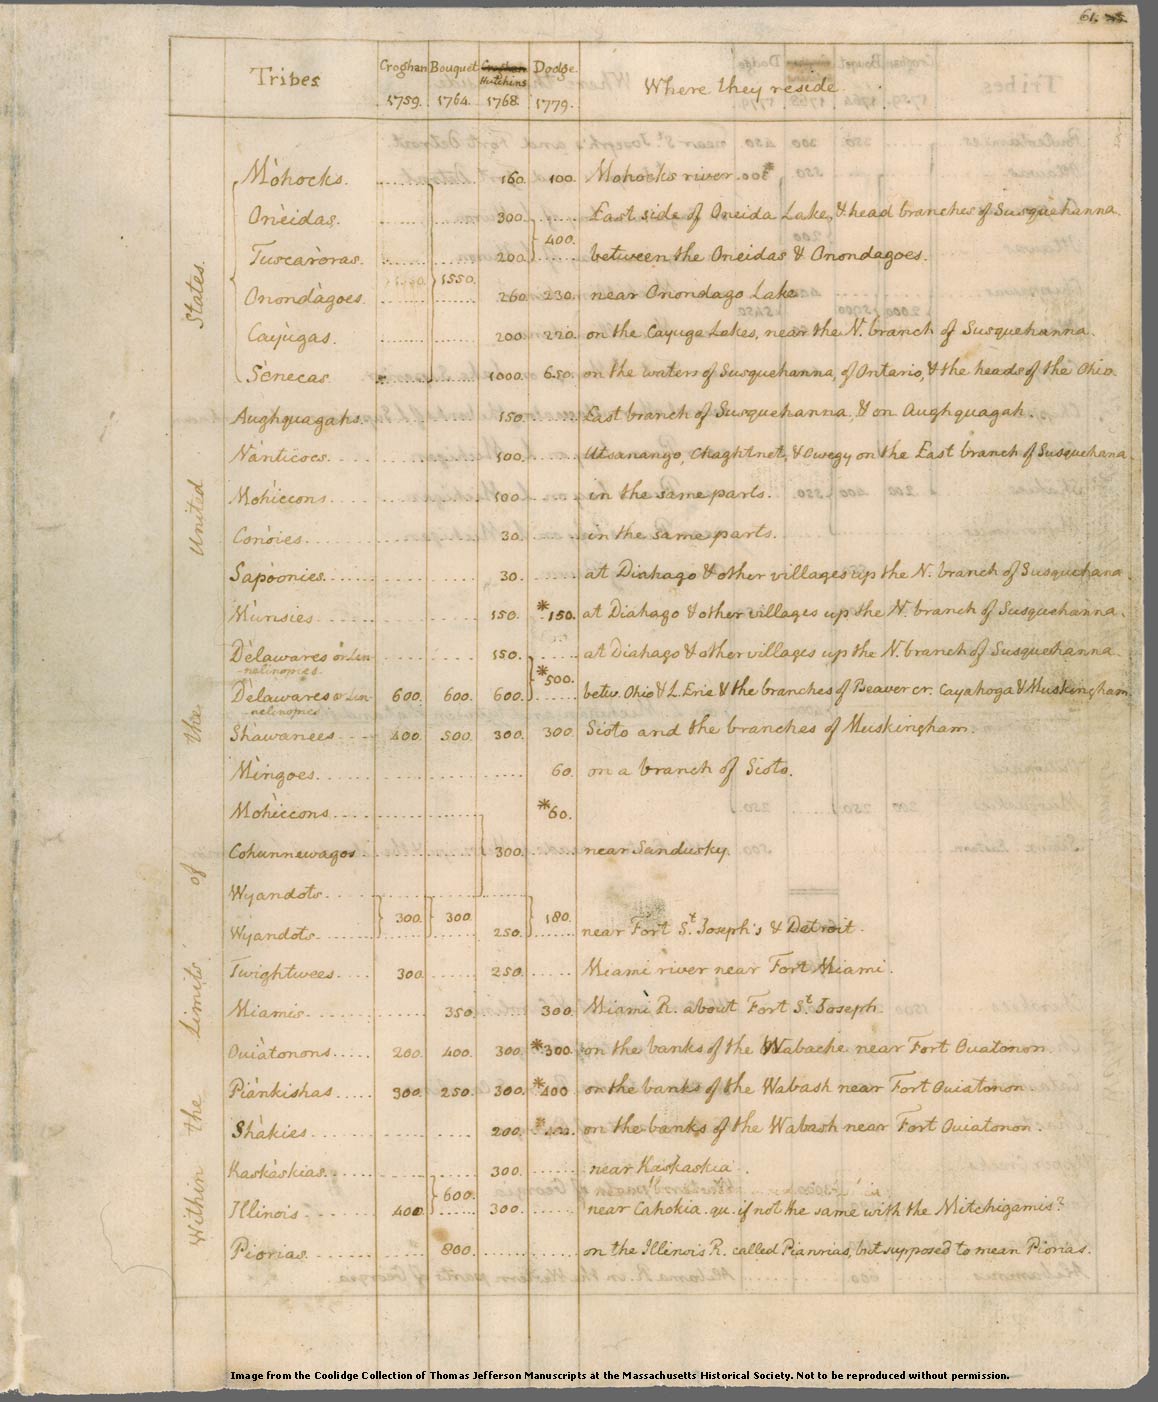 61.
Tribes Croghan 1759. Bouquet 1764. Croghan Hutchins 1768. Dodge 1779. Where they reside
Within the Limits of the United States.
Mohocks. 160. 100. Mohocks river.
Onèidas. 300. East side of Oneida Lake, & head branches of Susquehanna.
400.
Tuscaròras. 200. between the Oneidas & Onondagoes.
1550.
Onondàgoes. 260. 230. near Onondago Lake
Cayùgas. 200. 220. on the Cayuga Lakes, near the N. branch of Susquehanna.
Sènecas. 1000. 650. on the waters of Susquehanna, of Ontario, & the heads of the Ohio.
Aughquagahs. 150. East branch of Susquehanna, & on Aughquagah.
Nànticocs. 100. Utsanango, Chaghtnet, & Owegy on the East branch of Susquehana
Mohìccons. 100. in the same parts.
Conòies. 30. in the same parts.
Sapòonies. 30. at Diahago & other villages up the N. branch of Susquehana
Mùnsies. 150. *150. at Diahago & other villages up the N. branch of Susquehanna.
Dèlawares or Lin- 150. at Diahago & other villages up the N. branch of Susquehanna
nelinopies.
*500.
Dèlawares or Lin- 600. 600. 600. betw. Ohio & L. Erie & the branches of Beaver cr. Cayahoga & Muskingham.
nelinopies
Shàwanees 400. 500. 300. 300. Sioto and the branches of Muskingham.
Mìngoes. 60. on a branch of Sioto.
Mohìccons. *60.
Cohunnewagos 300. near Sandusky.
Wyandots.
300. 300. 180.
Wyandots. 250. near Fort St. Joseph's & Detroit.
Twightwees. 300. 250. Miami river near Fort Miami.
Miamis. 350. 300. Miami R. about Fort St. Joseph.
Ouiàtonons. 200. 400. 300. *300. on the banks of the Wabache near Fort Ouatonon.
Piànkishas 300. 250. 300. *400 on the banks of the Wabash near Fort Ouiatonon.
Shàkies. 200. on the banks of the Wabash near Fort Ouiatonon.
Kaskàskias. 300. near Kaskaskia.
600.
Illinois. 400. 300. near Cahokia. qu. if not the same with the Mitchigamis?
Piorias. 800. on the Illinois R. called Pianrias, but supposed to mean Piorias.
Image from the Coolidge Collection of Thomas Jefferson Manuscripts at the Massachusetts Historical Society. Not to be reproduced without permission.